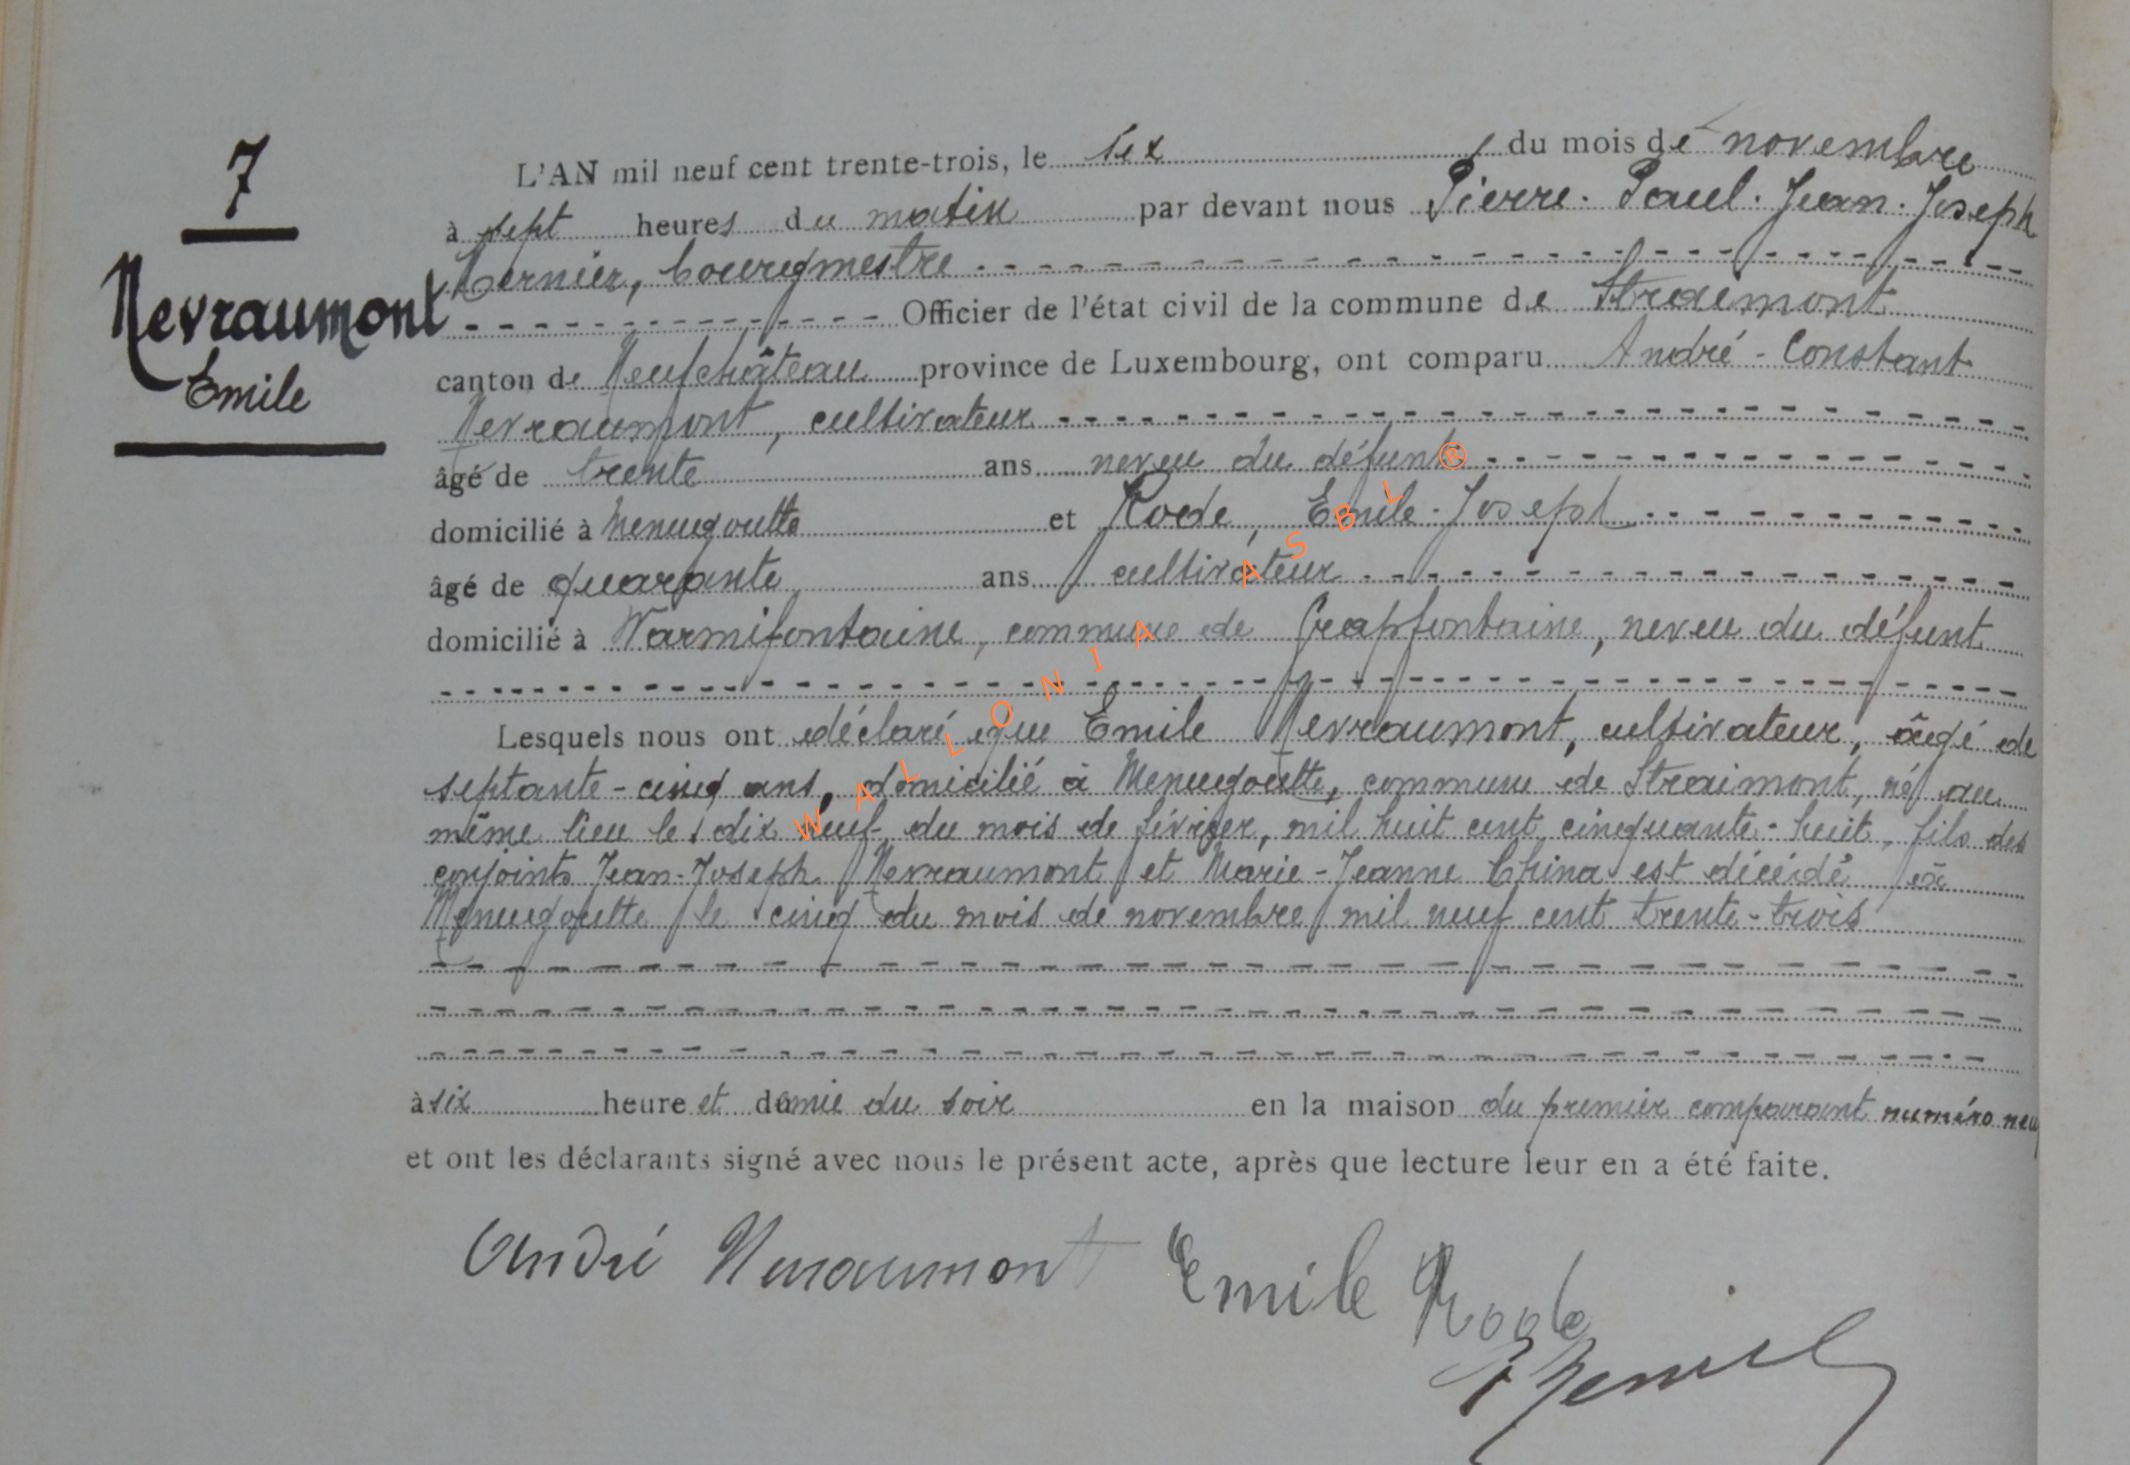 7
Nevraumont
Emile
L'AN mil neuf cent trente-trois, le six du mois de novembre
à sept heures du matin par devant nous Pierre-Paul-Jean-Joseph
bourgmestre
Officier de l'état civil de la commune de Straimont
canton de Neufchâteau province de Luxembourg, ont comparu André-Constant
Nevraumont, cultivateur
âgé de trente ans neveu du défunt
domicilié à Menugoutte et Rode, Emile-Joseph
âgé de quarante ans cultivateur
domicilié à Warmifontaine, commune de Grapfontaine, neveu du défunt
Lesquels nous ont déclaré que Emile Nevraumont, cultivateur, âgé de
septante-cinq ans, domicilié à Menugoutte, commune de Straimont, né au
même lieu le dix neuf du mois de février, mil huit cent cinquante-huit, fils des
conjoints Jean-Joseph Nevraumont et Marie-Jeanne China est décédé à
Menugoutte le cinq du mois de novembre mil neuf cent trente-trois
à six heure et demie du soir en la maison du premier comparant numéro neuf
et ont les déclarants signé avec nous le présent acte, après que lecture leur en a été faite.
André Nevraumont Emile Rode
WALLONIA ASBL ®